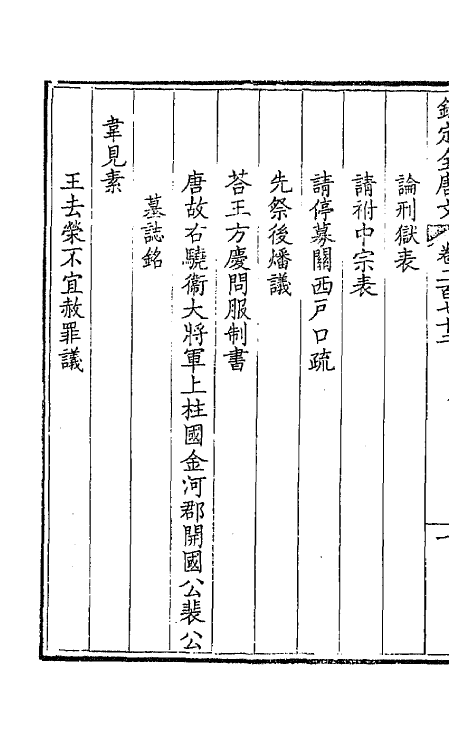 欽定全唐文 卷二百七十二 一
論刑獄表
請祔中宗表
請停募關西戶口疏
先祭後燔議
荅王方慶問服制書
唐故右驍衞大將軍上柱國金河郡開國公裴公
墓誌銘
韋見素
王去榮不宜赦罪議